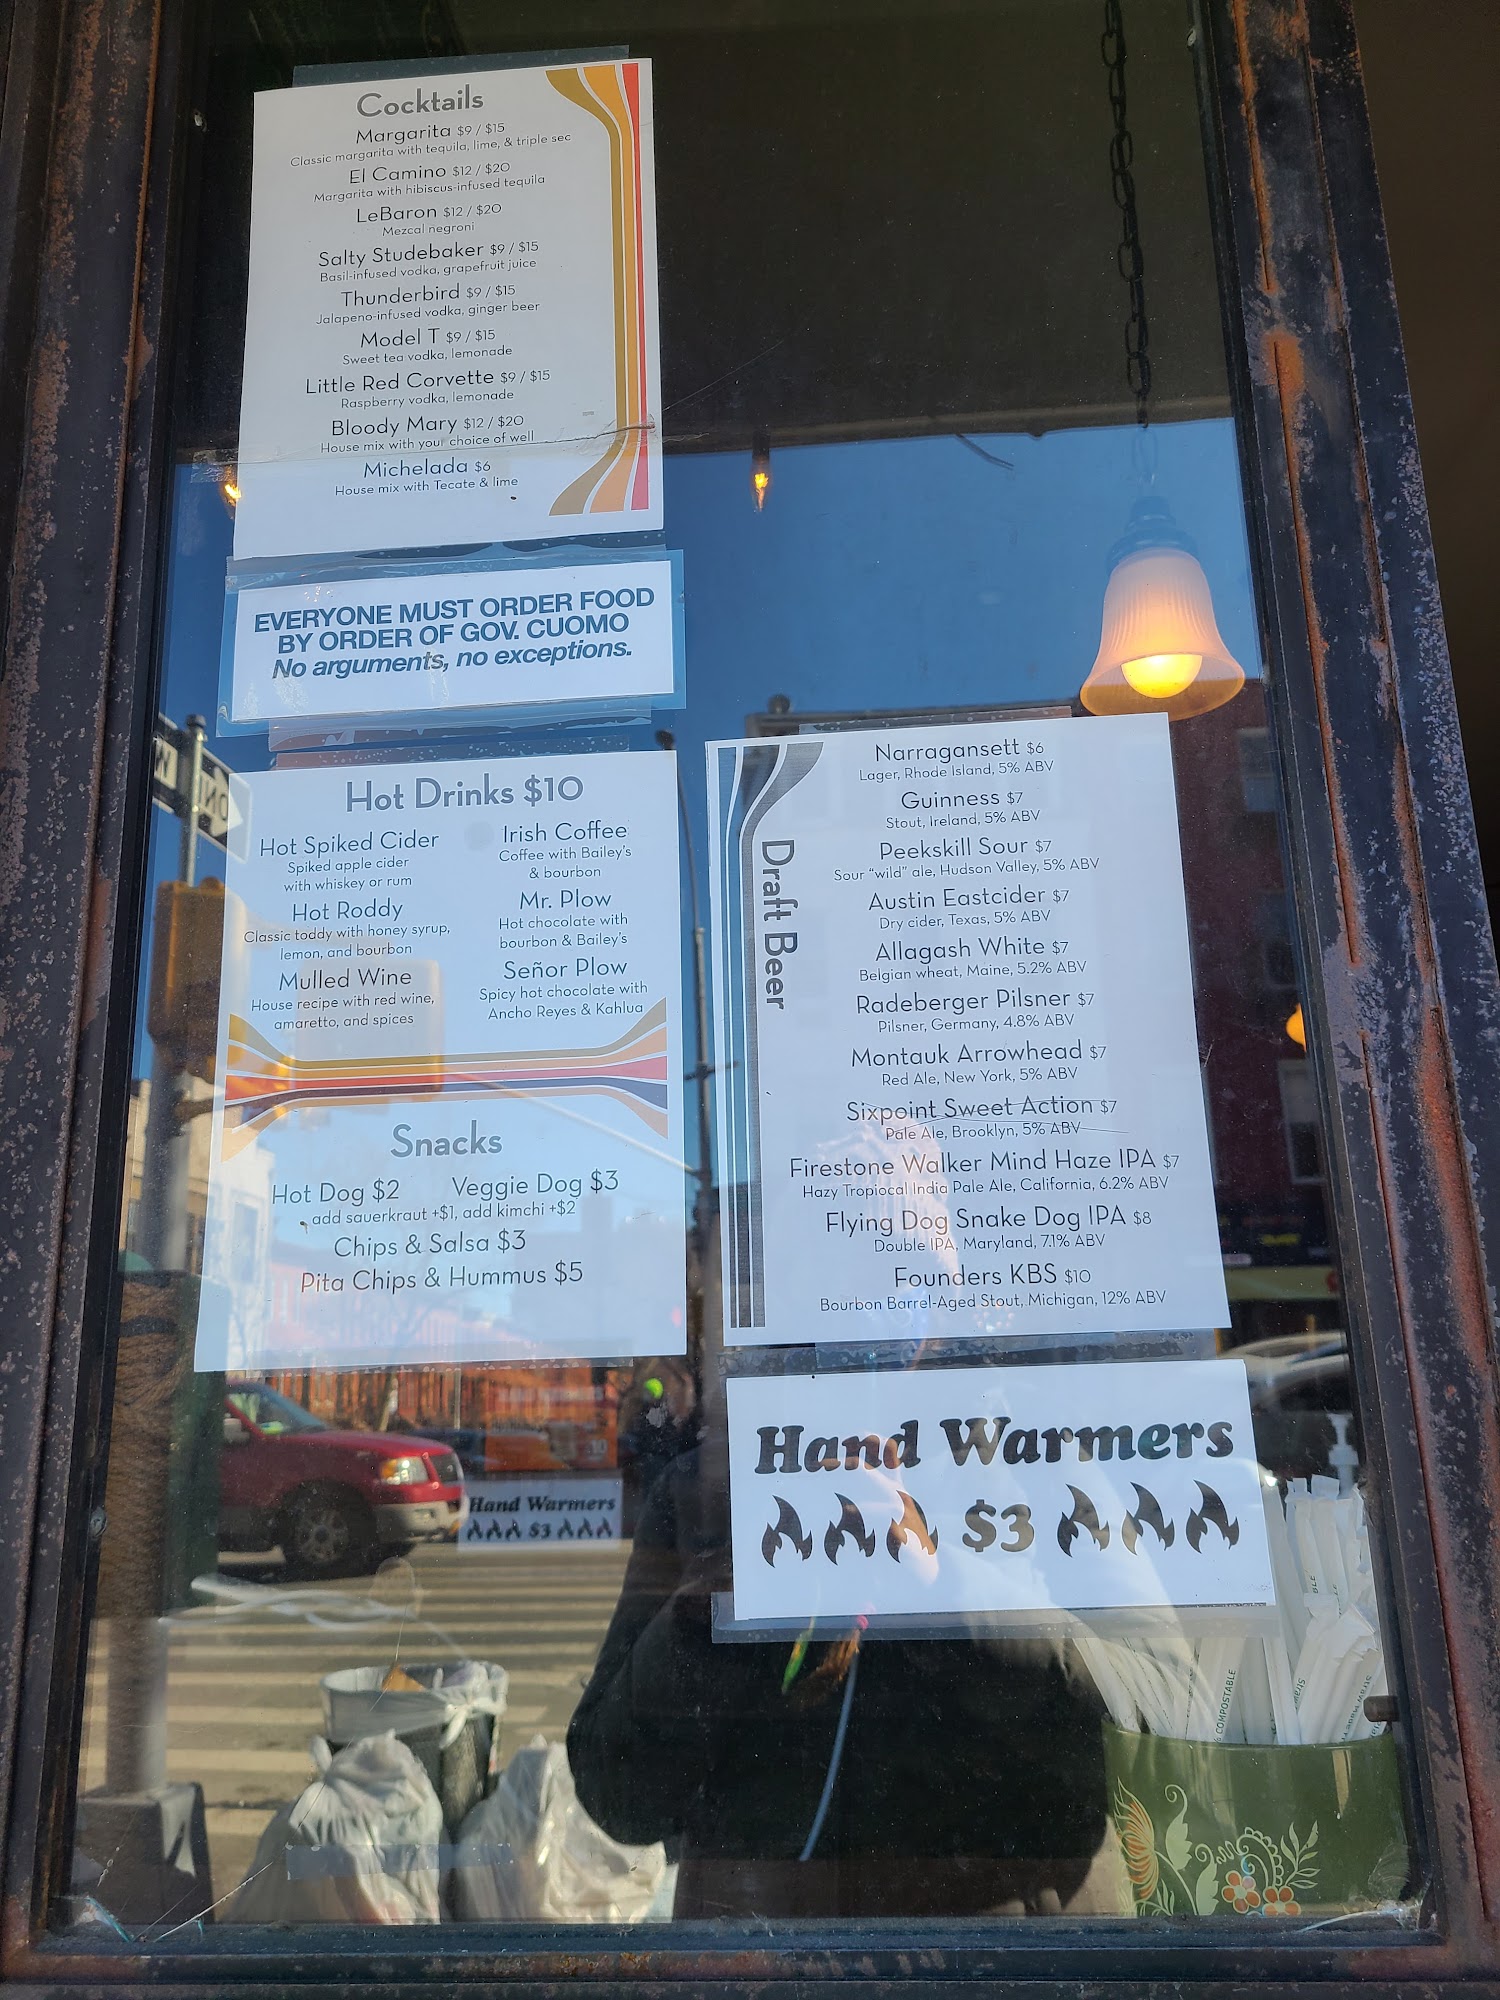 Cocktails
Margarita $9 / $15
Classic margarita with tequila, lime, & triple sec
El Camino $12 / $20
Margarita with hibiscus-infused tequila
LeBaron $12 / $20
Mezcal negroni
Salty Studebaker $9 / $15
Basil-infused vodka, grapefruit juice
Thunderbird $9 / $15
Jalapeno-infused vodka, ginger beer
Model T $9 / $15
Sweet tea vodka, lemonade
Little Red Corvette $9 / $15
Raspberry vodka, lemonade
Bloody Mary $12 / $20
House mix with your choice of well
Michelada $6
House mix with Tecate & lime
EVERYONE MUST ORDER FOOD
BY ORDER OF GOV. CUOMO
No arguments, no exceptions.
Hot Drinks $10
Hot Spiked Cider
Spiked apple cider
with whiskey or rum
Hot Roddy
Classic toddy with honey syrup,
lemon, and bourbon
Mulled Wine
House recipe with red wine,
amaretto, and spices
Irish Coffee
Coffee with Bailey's
& bourbon
Mr. Plow
Hot chocolate with
bourbon & Bailey's
Señor Plow
Spicy hot chocolate with
Ancho Reyes & Kahlua
Snacks
Hot Dog $2 Veggie Dog $3
add sauerkraut +$1, add kimchi +$2
Chips & Salsa $3
Pita Chips & Hummus $5
Draft Beer
Narragansett $6
Lager, Rhode Island, 5% ABV
Guinness $7
Stout, Ireland, 5% ABV
Peekskill Sour $7
Sour "wild" ale, Hudson Valley, 5% ABV
Austin Eastcider $7
Dry cider, Texas, 5% ABV
Allagash White $7
Belgian wheat, Maine, 5.2% ABV
Radeberger Pilsner $7
Pilsner, Germany, 4.8% ABV
Montauk Arrowhead $7
Red Ale, New York, 5% ABV
Sixpoint Sweet Action $7
Pale Ale, Brooklyn, 5% ABV
Firestone Walker Mind Haze IPA $7
Hazy Tropiocal India Pale Ale, California, 6.2% ABV
Flying Dog Snake Dog IPA $8
Double IPA, Maryland, 7.1% ABV
Founders KBS $10
Bourbon Barrel-Aged Stout, Michigan, 12% ABV
Hand Warmers
$3
Hand Warmers
$3
COMPOSTABLE